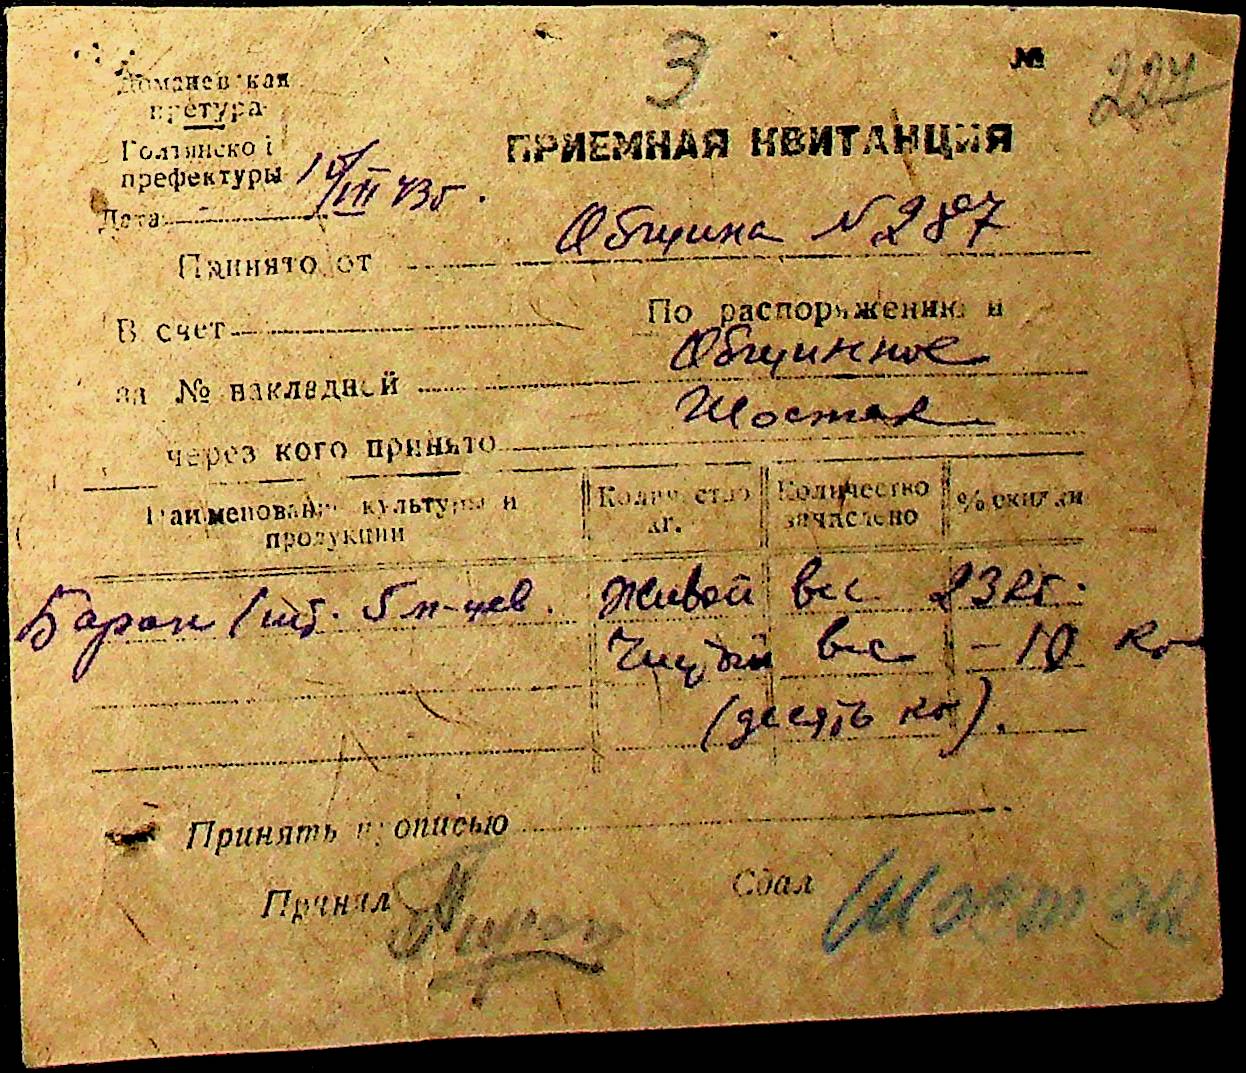 3
№ 227
Доманевская
претура
Голтянской
префектуры
ПРИЕМНАЯ КВИТАНЦИЯ
Дата 15/VII 43г.
Принято от Община №287
В счет По распоряжению и
за № накладной Общинное
через кого принято Шостак
Наименование культуры и продукции
Количество кг.
Количество зачислено
% скидки
Баран 1 шт. 5 м-цев. Живой вес 23 кг.
Чистый вес – 10 кг
(десять кг).
Принять прописью
Принял
Сдал Шостак